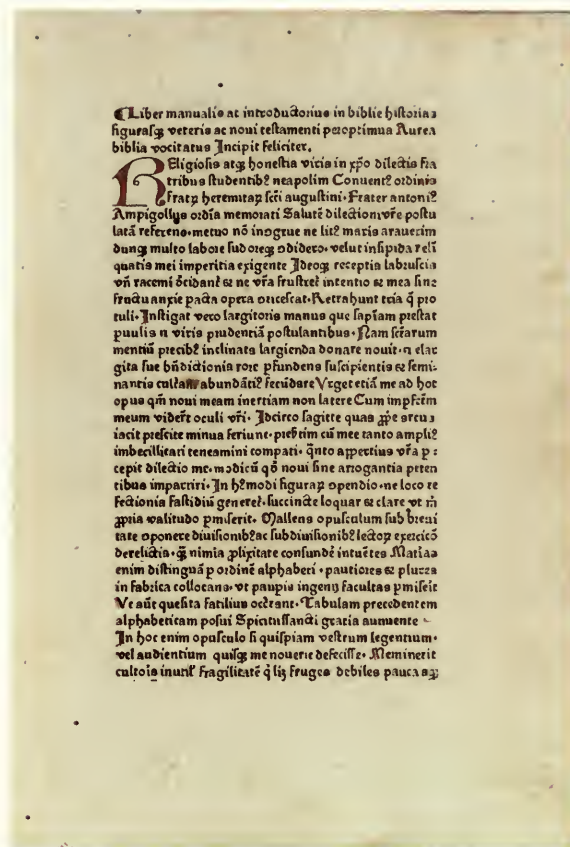 ¶Liber manualis ac introductorius in biblie historias
figurasqꝫ veteris ac noui testamenti peroptimua Aurea
biblia vocitatus Incipit feliciter.
REligiosis atqꝫ honestis viris in xpo dilectis fra
tribus studentibꝰ neapolim Conuentꝰ ordinis
fratꝝ heremitaꝝ scti augustini· Frater antoniꝰ
Ampigollus ordis memorati Salutē dilectiōi vre postu
latā referens· metuo nō inogrue ne litꝰ maris arauerim
dunqꝫ multo labore sudoreqꝫ odidero· velut insipida reli
quatis mei imperitia exigente Ideoqꝫ receptis labruscis
vn̄ racemi ōcidant̄ & ne vr̄a frustret̄ intentio & mea sine
fructu anxie pacta opera oticescat· Retrahunt tria q̄ pro
tuli· Instigat vero largitoris manus que sapiam prestat
puulis ⁊ viris prudentiā postulantibus· Nam scrarum
mentiū precibꝰ inclinata largienda donare nouit· ⁊ elar
gita sue bn̄dictionis rore pfundens suscipientis & semi⸗
nantis abundātiꝰ fecūdare Vrget etiā me ad hoc
opus qm̄ noui meam inertiam non latere Cum impfctm
meum videt̄ oculi vr̄i· Idcirco sagitte quas ꝓpe arcus
iacit prescite minus feriunt· presertim cū mee tanto ampliꝰ
imbecillitati teneamini compati· qn̄to aspectius vr̄a p⸗
cepit dilectio me· modicū qd̄ noui sine arrogantia peten
tibus impartiri· In hꝰmodi figuraꝝ opendio· ne loco re
fectionis fastidiū generet̄· succincte loquar & clare vt m̄
ꝓpria valitudo pmiserit· Mallens opusculum sub breui
tate oponere diuisionibꝰ ac subdiuisionibꝰ lectoꝝ exercicō
derelictis· qꝫ nimia ꝓlixitate confundē intuētes Matias
enim distinguā p ordinē alphabeti· pautiores & plures
in fabrica collocans· vt paupis ingenij facultas pmiseit
Vt aūt quesita facilius occr̄ant· Tabulam precedentem
alphabeticam posui Spiritussancti gracia annuente
In hoc enim opusculo si quispiam vestrum legentium·
vel audientium quisqꝫ me nouerit defecisse· Meminerit
cultoris inutiĺ fragilitatē q̄ licꝫ fruges debiles paucasqꝫ